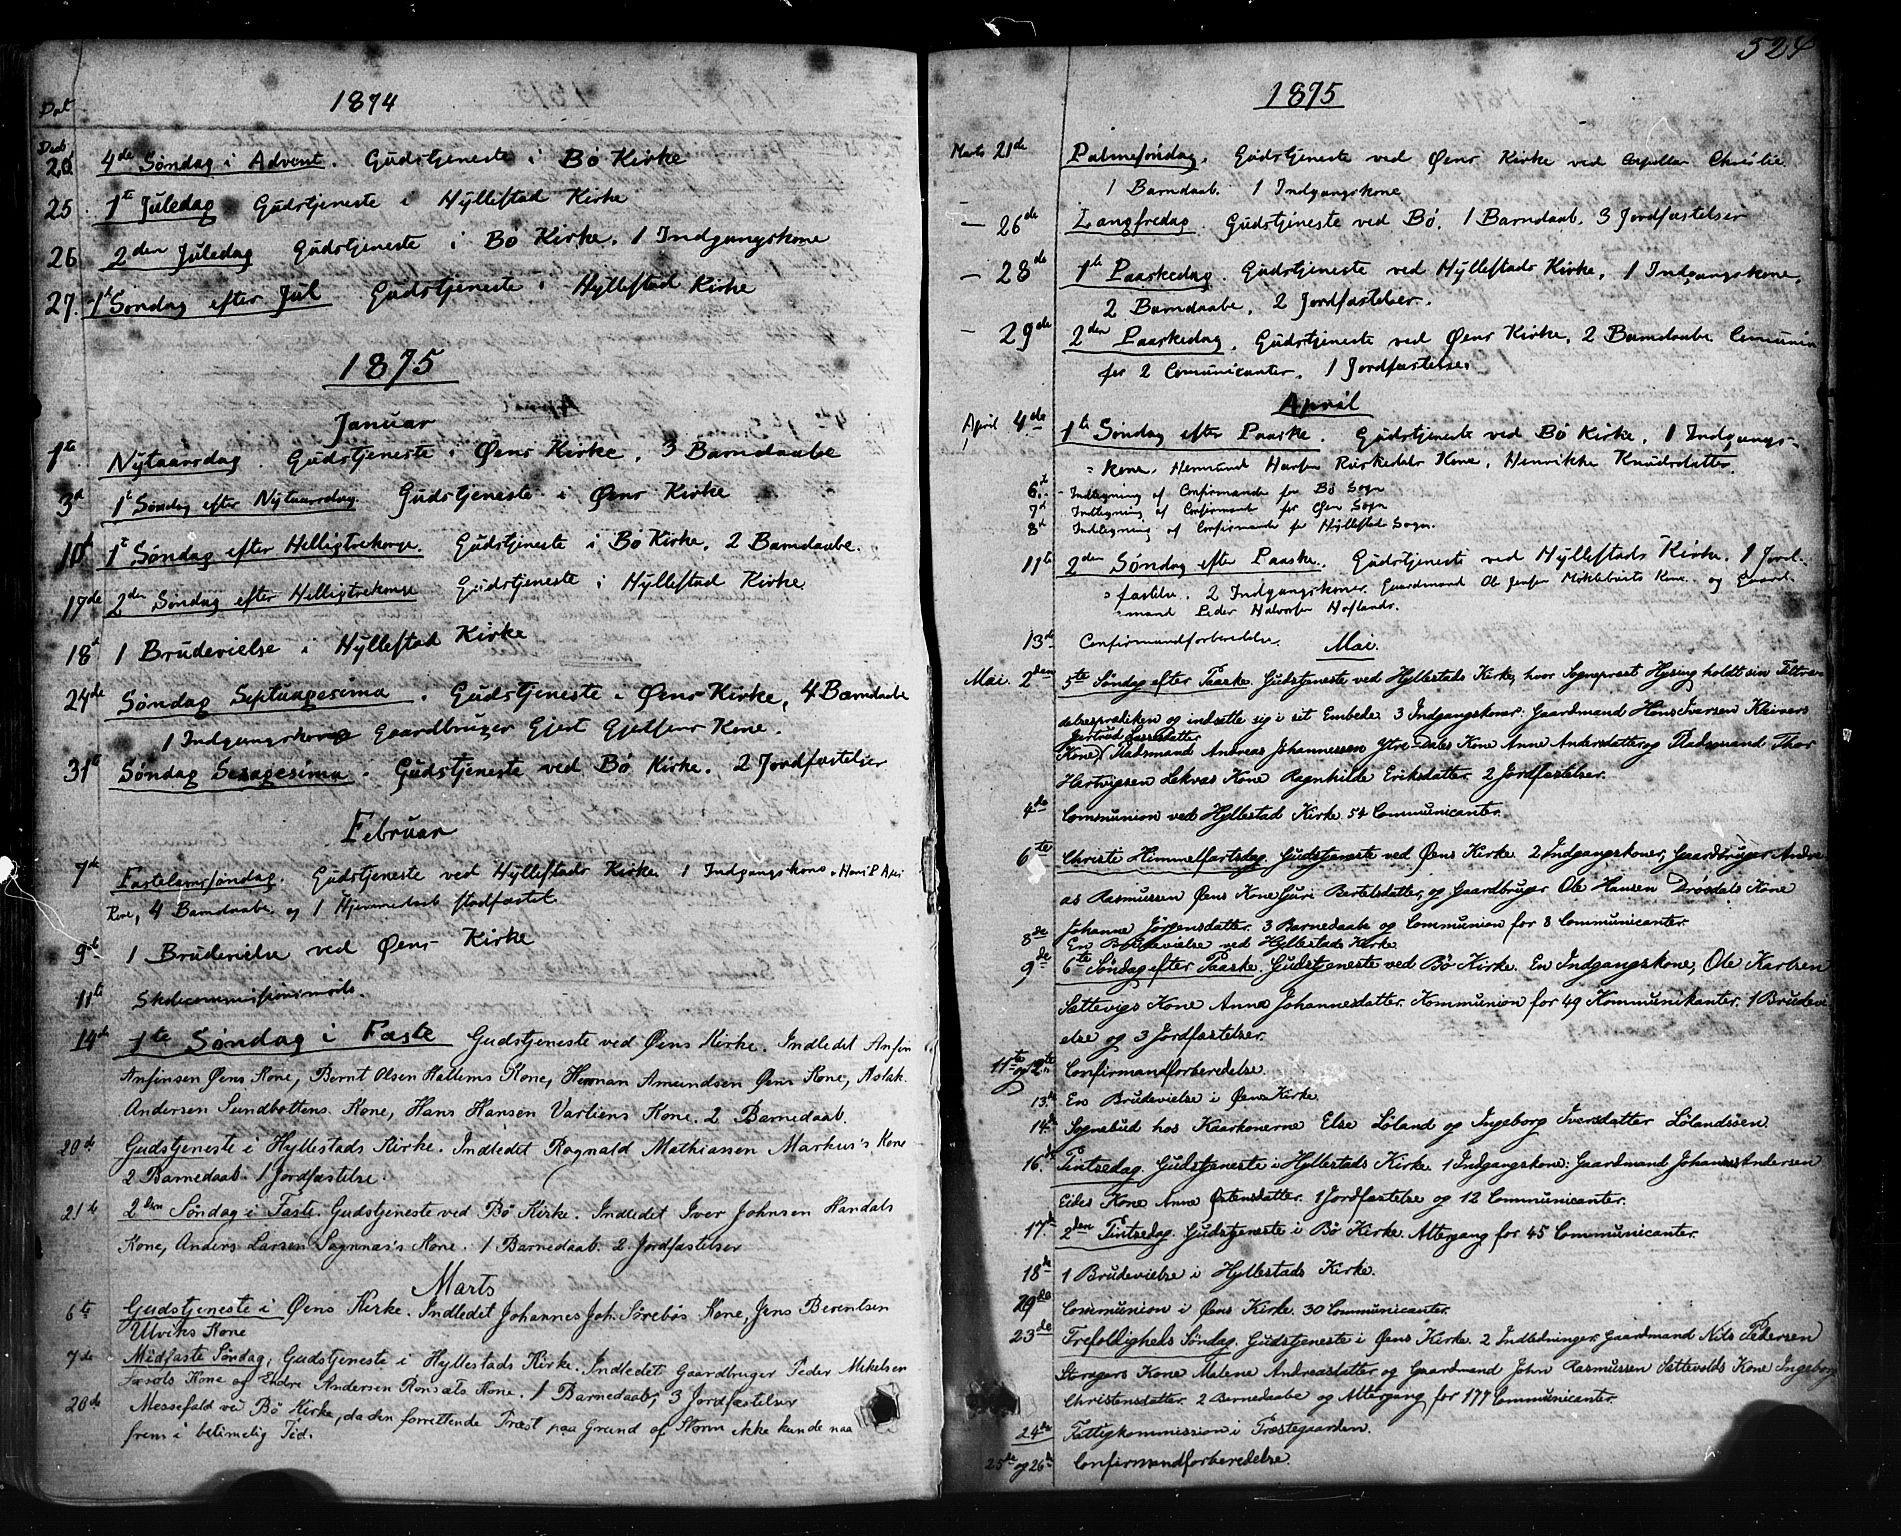 Dat
1874
Decb.
20 4de Søndag i Advent. Gudstjeneste i Bø Kirke
25 1te Juledag Gudstjeneste i Hyllestad Kirke
26 2den Juledag Gudstjeneste i Bø Kirke. 1 Indgangskone
27. 1te Søndag efter Jul Gudstjeneste i Hyllestad Kirke
1875
Januar
1te Nytaarsdag. Gudstjeneste i Øens Kirke. 3 Barndaabe
3d 1te Søndag efter Nytaarsdag Gudstjeneste i Øens Kirke
10d 1te Søndag efter Helligtrekonge. Gudstjeneste i Bø Kirke. 2 Barndaabe.
17de 2den Søndag efter Helligtrekonge Gudstjeneste i Hyllestad Kirke
18d 1 Brudevielse i Hyllestad Kirke
24de Søndag Septuagesima. Gudstjeneste i Øens Kirke, 4 Barndaabe
1 Indgangskone Gaardbruger Gjert Kone.
31te Søndag Sexagesima. Gudstjeneste ved Bø Kirke. 2 Jordfæstelser
Februar
7de Fastelavnssøndag. Gudstjeneste ved Hyllestads Kirke 1 Indgangskone
Kone, 4 Barndaabe og 1 Hjemmedaab stadfæstet
9de 1 Brudevielse ved Øens Kirke
11te Skolecommissionsmøde.
14de 1te Søndag i Faste Gudstjeneste ved Øens Kirke. Indledet Anfin
Anfinsen Øens Kone, Bernt Olsen Hallems Kone, Herman Amundsen Øens Kone, Aslak
Andersen Sundbottens Kone, Hans Hansen Vartiens Kone. 2 Barnedaab.
20de Gudstjeneste i Hyllestads Kirke. Indledet Ragnald Mathiassen Markus's Kone
2 Barnedaab. 1 Jordfæstelse.
21de 2den Søndag i Faste. Gudstjeneste ved Bø Kirke. Indledet Iver Johnsen Handals
Kone, Anders Larsen Sognnæs's Kone. 1 Barnedaab. 2 Jordfæstelser
Marts
6te Gudstjeneste i Øens Kirke. Indledet Johannes Joh. Sørebøs Kone, Jens Berentsen
Ulviks Kone
7de Midfaste Søndag, Gudstjeneste i Hyllestads Kirke. Indledet Gaardbruger Peder Mikelsen
Kone og Endre Andersen Ronsets Kone. 1 Barnedaab, 3 Jordfæstelser
20de Messefald ved Bø Kirke, da den forrettende Præst paa Grund af Storm ikke kunde naa
frem i betimelig Tid.
524
1875
Marts 21de Palmesøndag. Gudstjeneste ved Øens Kirke ved Capellan Christie
1 Barndaab. 1 Indgangskone
— 26de Langfredag. Gudstjeneste ved Bø. 1 Barndaab. 3 Jordfæstelser
— 28de 1te Paaskedag. Gudstjeneste ved Hyllestads Kirke, 1 Indgangskone,
2 Barndaabe, 2 Jordfæstelser.
— 29de 2den Paaskedag. Gudstjeneste ved Øens Kirke, 2 Barndaabe Comunion
for 2 Comunicanter. 1 Jordfæstelse.
April
April 4de 1te Søndag efter Paaske. Gudstjeneste ved Bø Kirke. 1 Indgangs-
kone. Hermand Hansen Kone, Henrikke Knudsdatter
6te Indtegning af Confirmander for Bø Sogn
7d Indtegning af Confirmand for Øen Sogn
8d Indtegning af Confirmande for Hyllestad Sogn.
11te 2den Søndag efter Paaske. Gudstjeneste ved Hyllestads Kirke. 1 Jord-
fæstelse. 2 Indgangskoner Gaardmand Ole Jensen Møklebusts Kone og Gaard-
mand Peder Halvorsen Hoflands.
13de Confirmandforberedelse.
Mai.
Mai. 2den 5te Søndag efter Paaske. Gudstjeneste ved Hyllestads Kirke, hvor Sogneprest Hysing holdt sin Tiltræ-
delsesprædiken og indsatte sig i sit Embede. 3 Indgangskoner: Gaardmand Hans Iversen Kleivers
Gertrud Lassedatter
Kone, Pladsmand Andreas Johannessen Ytre-Dales Kone Anne Andersdatter og Pladsmand Thor
Hertvigsen Lekvas Kone Ragnhilde Eriksdatter. 2 Jordfæstelser.
4de Communion ved Hyllestad Kirke. 54 Communicanter.
6te Christi Himmelfartsdag. Gudstjeneste ved Øens Kirke. 2 Indgangskoner, Gaardbruger Andre-
as Rasmussen Øens Kone Guri Bertelsdatter, og Gaardbruger Ole Hansen Drøsdals Kone
Johanne Jørgensdatter. 3 Barnedaabe og Communion for 8 Communicanter.
8de En Brudevielse ved Hyllestads Kirke
9de 6te Søndag efter Paaske. Gudstjeneste ved Bø Kirke. En Indgangskone, Ole Karlsen
Sættevigs Kone Anne Johannesdatter. Kommunion for 49 Kommunikanter. 1 Brudevi-
else og 3 Jordfæstelser.
11te og 12te Confirmandforberedelse.
13de En Brudevielse i Øens Kirke.
14de Sognebud hos Kaarkonerne Else Løland og Ingeborg Iversdatter Lølandssøen.
16de Pintsedag. Gudstjeneste i Hyllestads Kirke. 1 Indgangskone: Gaardmand Johannes Andersen
Eides Kone Anne Østensdatter. 1 Jordfæstelse og 12 Communicanter.
17de 2den Pintsedag. Gudstjeneste i Bø Kirke. Altergang for 45 Communicanter.
18de 1 Brudevielse i Hyllestads Kirke.
29de Communion i Øens Kirke. 30 Communicanter.
23de Trefoldigheds Søndag. Gudstjeneste i Øens Kirke. 2 Indledninger: Gaardmand Nils Pedersen
Storagers Kone Malene Andreasdatter og Gaardmand John Rasmussen Sættevolds Kone Ingeborg
Christensdatter. 2 Barnedaabe og Altergang for 177 Communicanter.
24de Fattigkommission i Præstegaarden.
25de og 26de Confirmandforberedelse.